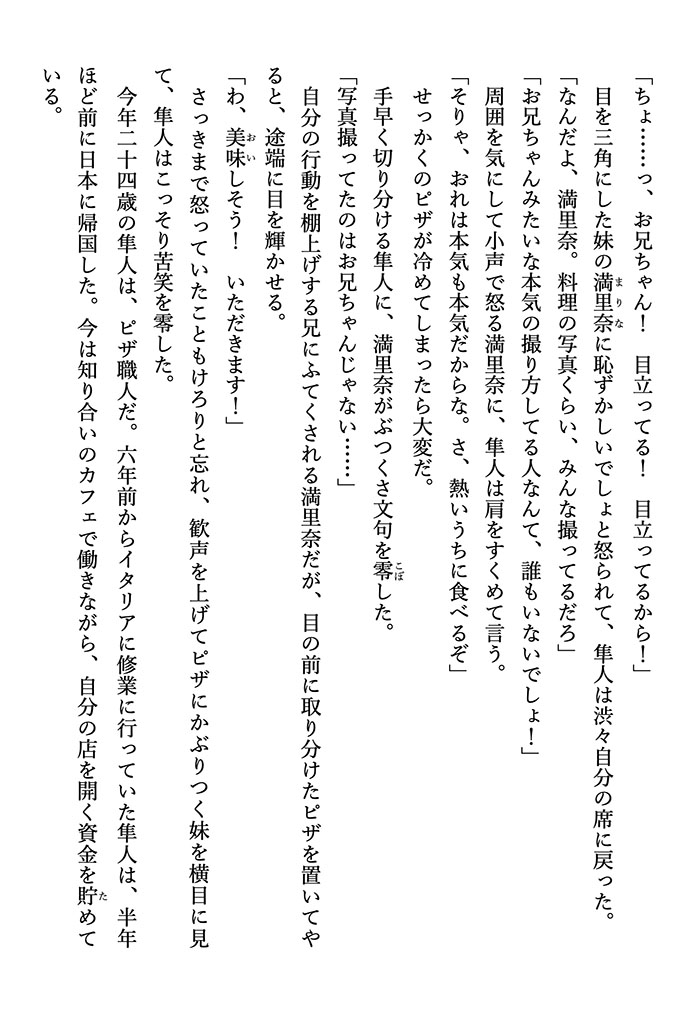 「ちょ……っ、お兄ちゃん！　目立ってる！　目立ってるから！」
　目を三角にした妹の満里奈に恥ずかしいでしょと怒られて、隼人は渋々自分の席に戻った。
「なんだよ、満里奈。料理の写真くらい、みんな撮ってるだろ」
「お兄ちゃんみたいな本気の撮り方してる人なんて、誰もいないでしょ！」
　周囲を気にして小声で怒る満里奈に、隼人は肩をすくめて言う。
「そりゃ、おれは本気も本気だからな。さ、熱いうちに食べるぞ」
　せっかくのピザが冷めてしまったら大変だ。
　手早く切り分ける隼人に、満里奈がぶつくさ文句を零した。
「写真撮ってたのはお兄ちゃんじゃない……」
　自分の行動を棚上げする兄にふてくされる満里奈だが、目の前に取り分けたピザを置いてや
ると、途端に目を輝かせる。
「わ、美味しそう！　いただきます！」
　さっきまで怒っていたこともけろりと忘れ、歓声を上げてピザにかぶりつく妹を横目に見
て、隼人はこっそり苦笑を零した。
　今年二十四歳の隼人は、ピザ職人だ。六年前からイタリアに修業に行っていた隼人は、半年
ほど前に日本に帰国した。今は知り合いのカフェで働きながら、自分の店を開く資金を貯めて
いる。